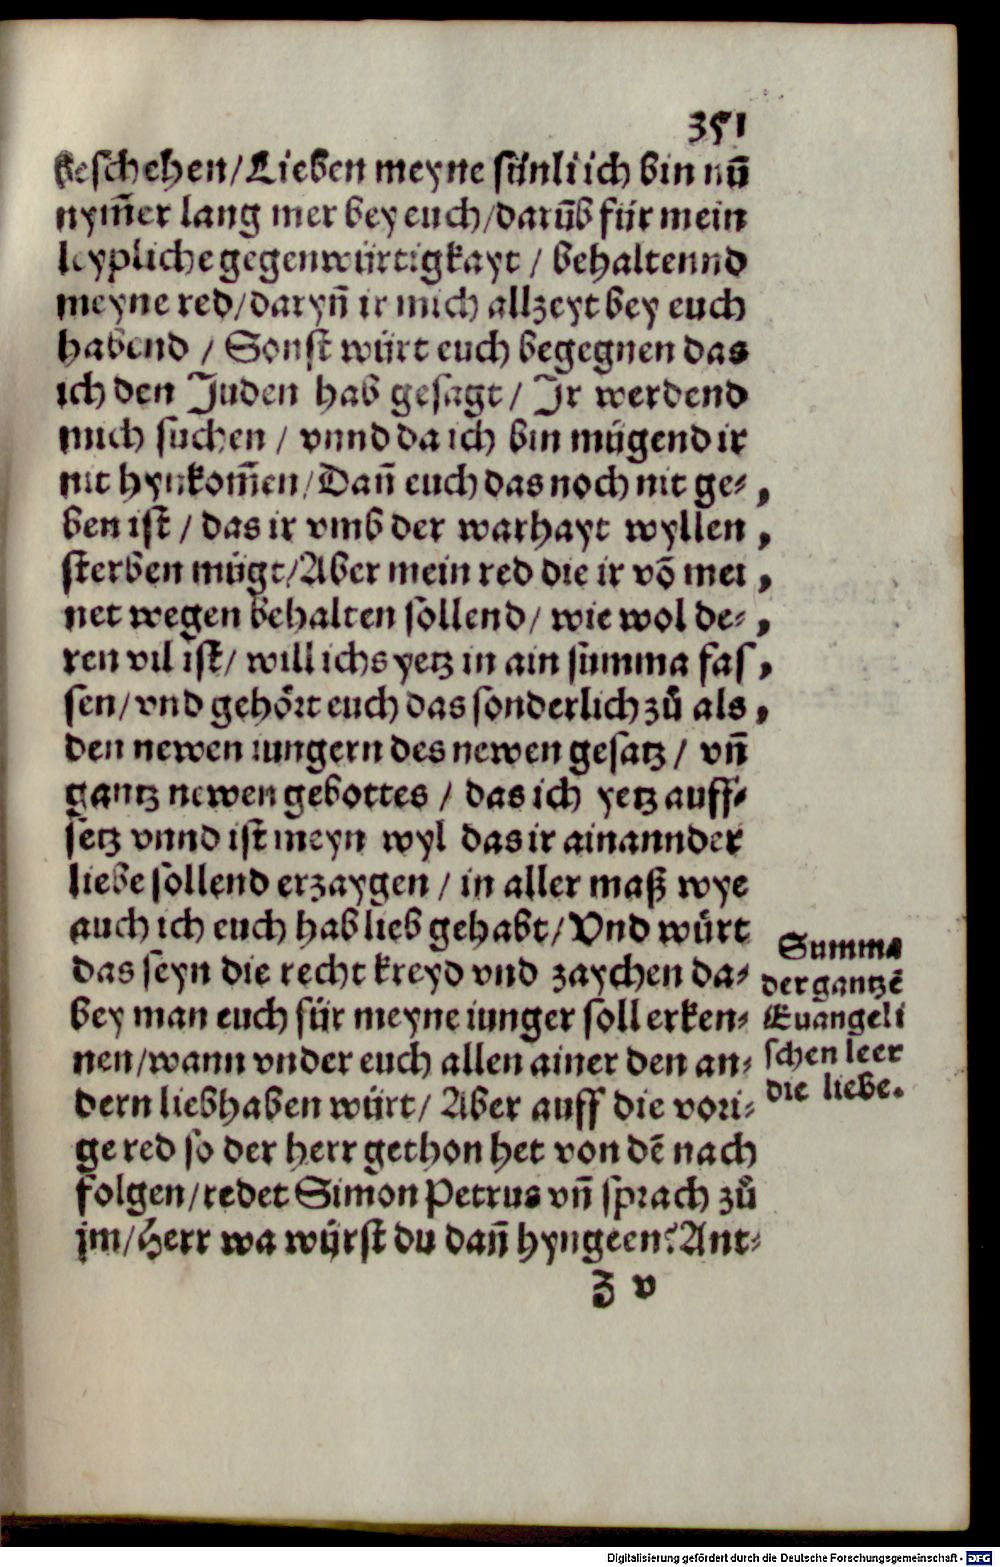 351
geschehen/Lieben meyne sünli ich bin nū
nym̄er lang mer bey euch/darūb für mein
leypliche gegenwürtigkayt / behaltennd
meyne red/daryn̄ ir mich allzeyt bey euch
habend / Sonst würt euch begegnen das
ich den Juden hab gesagt / Jr werdend
mich suchen / vnnd da ich bin mügend ir
nit hynkom̄en/Dan̄ euch das noch nit ge⸗ ,
ben ist / das ir vmb der warhayt wyllen ,
sterben mügt/Aber mein red die ir vō mei ,
net wegen behalten sollend/ wie wol de⸗ ,
ren vil ist/ will ichs yetz in ain summa fas ,
sen/vnd gehört euch das sonderlich zů als ,
den newen iungern des newen gesatz / vn̄
gantz newen gebottes / das ich yetz auff⸗
setz vnnd ist meyn wyl das ir ainannder
liebe sollend erzaygen / in aller maß wye
auch ich euch hab lieb gehabt/Vnd würt
das seyn die recht kreyd vnd zaychen da⸗
bey man euch für meyne iunger soll erken⸗
nen/wann vnder euch allen ainer den an⸗
dern liebhaben würt/ Aber auff die vori⸗
ge red so der herr gethon het von dē nach
folgen/redet Simon Petrus vn̄ sprach zů
jm/Herr wa würst du dan̄ hyngeen? Ant⸗
Z v
Summa
der gantzē
Euangeli
schen leer
die liebe.
Digitalisierung gefördert durch die Deutsche Forschungsgemeinschaft - DFG